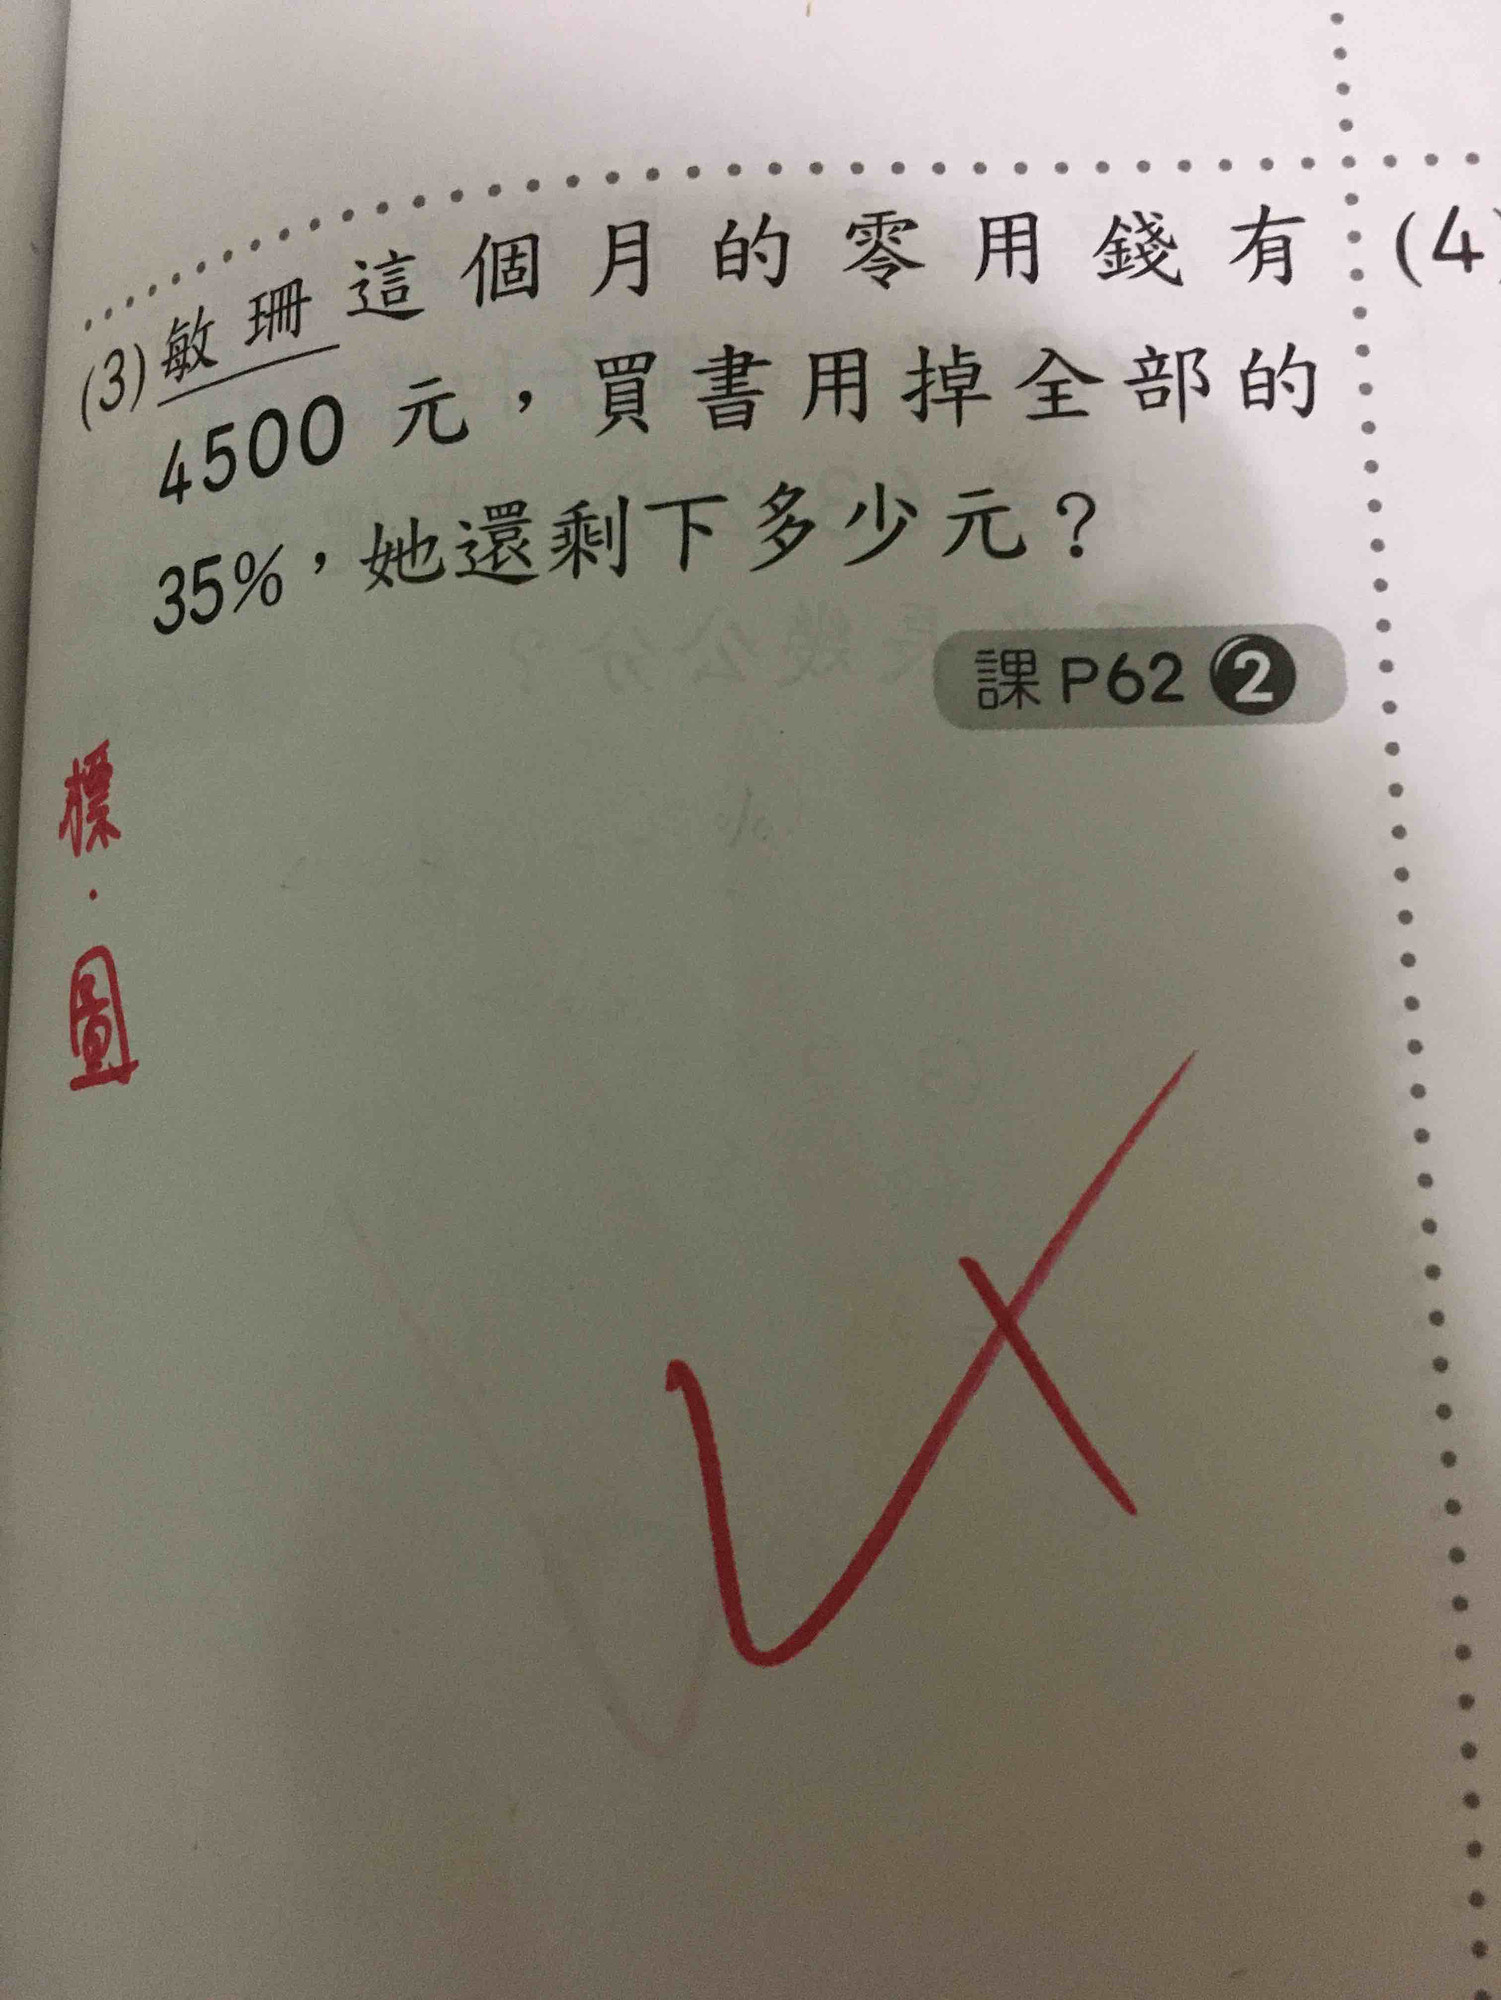 (3)敏珊這個月的零用錢有
4500元，買書用掉全部的
35%，她還剩下多少元？
課P62 2
(4)
標．圖